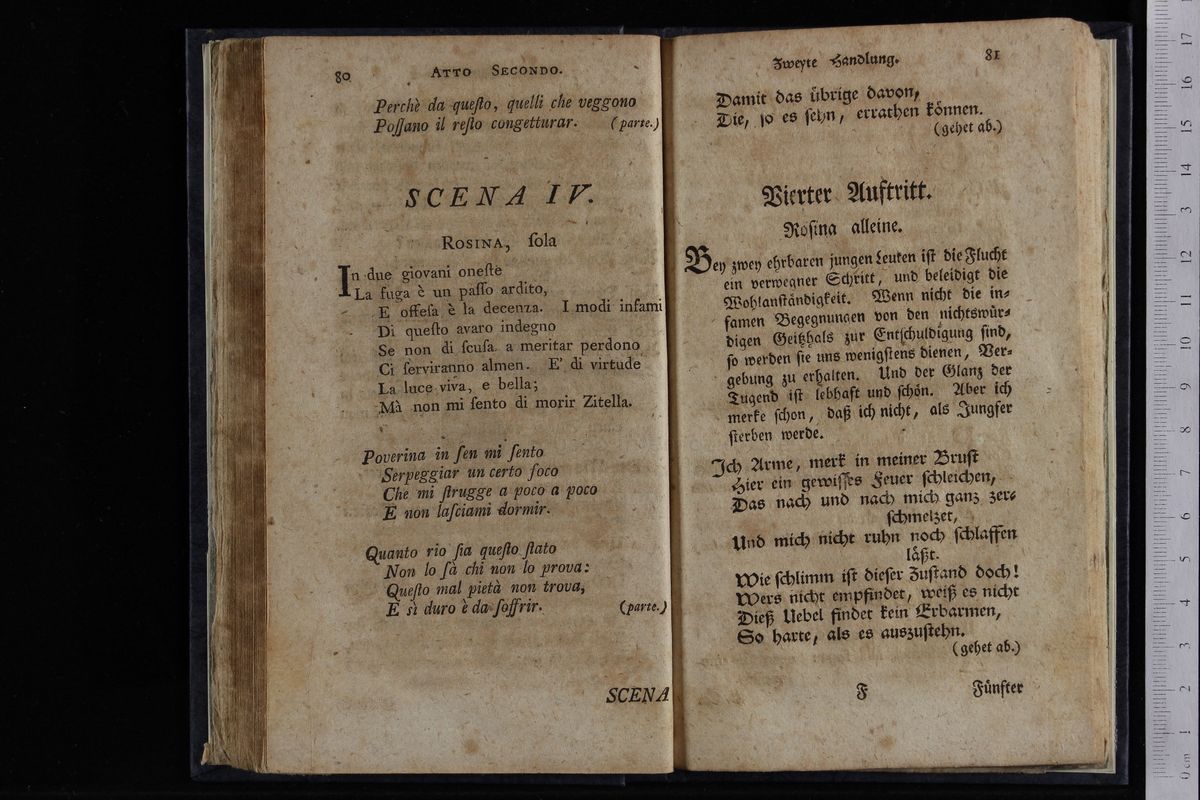 80 ATTO SECONDO.
Perchè da queſto, quelli che veggono
Poſſano il reſto congetturar. (parte.)
SCENA IV.
ROSINA, ſola
In due giovani oneſte
La fuga è un paſſo ardito,
E offeſa è la decenza. I modi infami
Di queſto avaro indegno
Se non di ſcuſa a meritar perdono
Ci ſerviranno almen. E' di virtude
La luce viva, e bella;
Mà non mi ſento di morir Zitella.
Poverina in ſen mi ſento
Serpeggiar un certo foco
Che mi ſtrugge a poco a poco
E non laſciami dormir.
Quanto rio ſia queſto ſtato
Non lo ſà chi non lo prova:
Queſto mal pietà non trova,
E sì duro è da ſoffrir. (parte.)
SCENA
Zweyte Handlung. 81
Damit das übrige davon,
Die, ſo es ſehn, errathen können.
(gehet ab.)
Vierter Auftritt.
Roſina alleine.
Bey zwey ehrbaren jungen Leuten iſt die Flucht
ein verwegner Schritt, und beleidigt die
Wohlanſtändigkeit. Wenn nicht die in-
famen Begegnungen von den nichtswür-
digen Geitzhals zur Entſchuldigung ſind,
ſo werden ſie uns wenigſtens dienen, Ver-
gebung zu erhalten. Und der Glanz der
Tugend iſt lebhaft und ſchön. Aber ich
merke ſchon, daß ich nicht, als Jungfer
ſterben werde.
Ich Arme, merk in meiner Bruſt
Hier ein gewiſſes Feuer ſchleichen,
Das nach und nach mich ganz zer-
ſchmelzet,
Und mich nicht ruhn noch ſchlaffen
läßt.
Wie ſchlimm iſt dieſer Zuſtand doch!
Wers nicht empfindet, weiß es nicht
Dieß Uebel findet kein Erbarmen,
So harte, als es auszuſtehn.
(gehet ab.)
F Fünfter
0 cm 1 2 3 4 5 6 7 8 9 10 11 12 13 14 15 16 17